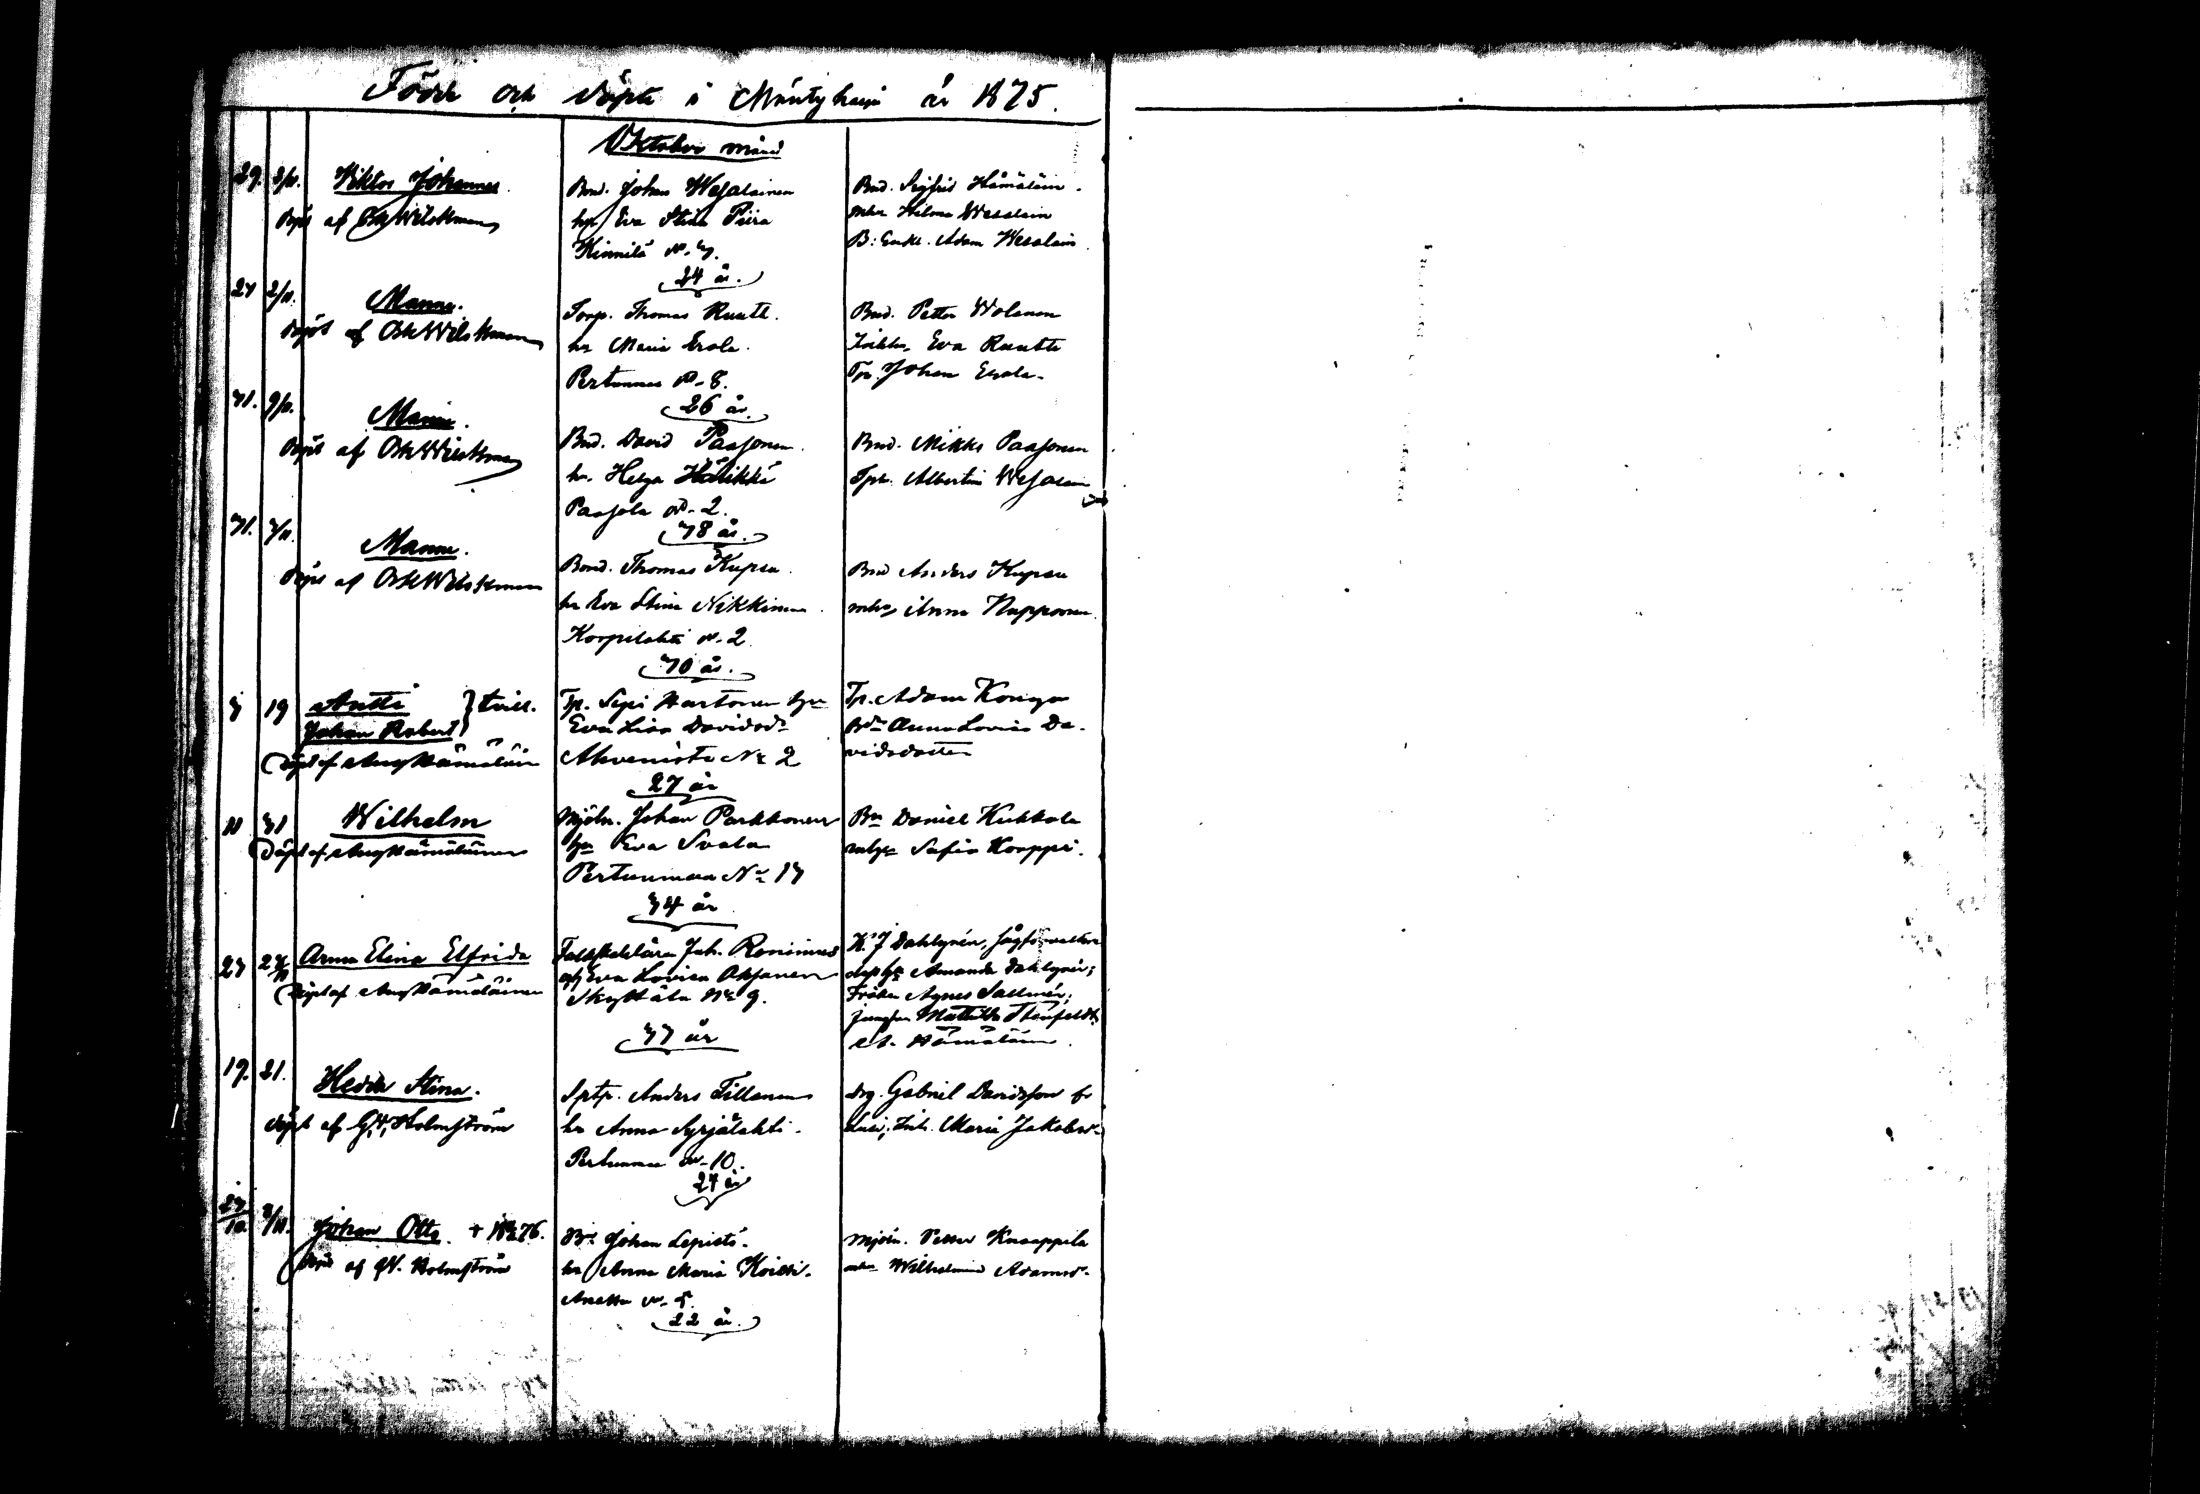 Födde och döpte i Mäntyharju år 1875.
Oktober månad
29. 3/11. Viktor Johannes.
döpt af OskWilskman
Bond. Johan Wesalainen
hu Eva Stina Piira
Kinnilä No 3.
24 år.
Bnd. Sigfrid Hämäläin.
mhu Hilma Wesalain
B: Enkl. Adam Wesalain.
27 2/11. Manne.
döpt af OskWilskman
Torp. Thomas Ruuth.
hu Maria Erola.
Pertunmaa No 8.
26 år.
Bnd. Petter Wolanen
Eva Ruuth
Tp. Johan Erola.
31. 9/11.
döpt af OskWilskman
Bnd. David Paasonen.
hu. Helga Häkikkä
Paasola No 2.
38 år.
Bnd. Mikko Paasonen
Albertin Wesalain
31. 7/11. Manne.
döpt af OskWilskman
Bond. Thomas Kupsa.
hu Eva Stina Nikkinen.
Korpilahti No 2
30 år.
Bnd Anders Kupsa
mhu Anna Nupponen.
3 19 Antti } tvill.
Johan Robert
Döpt af AugHämäläin
Tp. Sipi Hartonen hu
Eva Lisa Davidsdr
Ahvenisto No 2
27 år
Tp. Adam Konga
Anna Lovisa Da-
vidsdotter
11 31 Wilhelm
Döpt af AugHämäläinen
Mjöln. Johan Parkkonen
hu Eva Svala
Pertunmaa No 13
34 år
Bn Daniel Kukkola
mhu Sofia Korppi.
23 24/11 Anna Elina Elfrida
Döpt af AugHämäläinen
Joh. Ronimus
o/ Eva Lovisa Oksanen
Skyttälä No 9.
37 år
K. J Dahlgrén, sågförvaltare
Amanda Dahlgrén;
Fröken Agnes Sallmén;
jungfru Mathilda Thunfeldt,
A. Hämäläin.
19. 21. Hedda Stina.
döpt af G.W. Holmström
Sptp. Anders Tillanen
hu Anna Syrjälahti.
Pertunmaa No 10.
27 år
drg. Gabriel Davidsson fr
Maria Jakobsd.
23/10. 3/11. Johan Otto. + 76.
döpt af GW. Holmström
Bd Johan Lepistö.
hu Anna Maria Koisti.
No 5.
22 år.
Mjöln. Petter Knaappila
mhu Wilhelmina Adamsd.